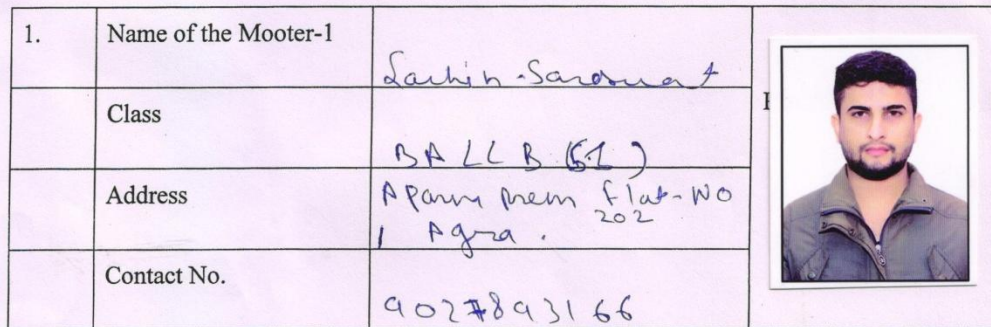 1. Name of the Mooter-1
Sachin Saraswat
Class
BA LLB
Address
flat-No
202
, Agra.
Contact No.
9027893166